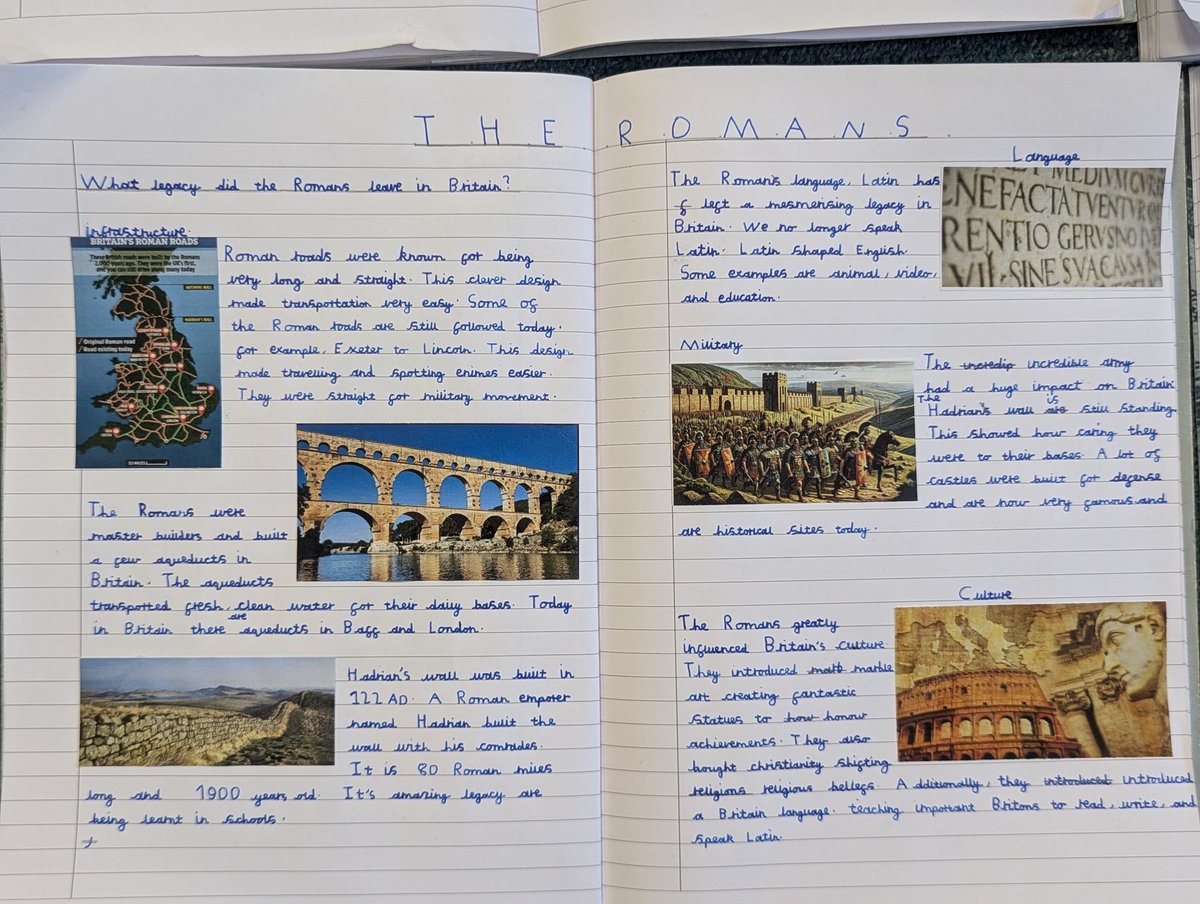 THE ROMANS.
What legacy did the Romans leave in Britain?
infrastructure.
BRITAIN'S ROMAN ROADS
These British roads were built by the Romans
2,000 years ago. They were the UK's first,
and you can still drive along many today
ANTONINE WALL
HADRIAN'S WALL
Original Roman road
Road existing today
50 MILES
Roman roads were known for being
very long and straight. This clever design
made transportation very easy. Some of
the Roman roads are still followed today.
for example, Exeter to Lincoln. This design
made travelling and spotting enimes easier.
They were straight for military movement.
The Romans were
master builders and built
a few aqueducts in
Britain. The aqueducts
transported fresh, clean water for their daily bases. Today
in Britain there are aqueducts in Baff and London.
Hadrian's wall was built in
122 AD. A Roman emporer
named Hadrian built the
wall with his comrades.
It is 80 Roman miles
long and 1900 years old. It's amazing legacy are
being learnt in schools.
Language
The Roman's language, Latin has
f left a mesmerising legacy in
Britain. We no longer speak
Latin. Latin shaped English.
Some examples are animal, video,
and education.
MEDIVM CVR
NEFACTATVENTVRO
RENTIO GERVSNO
VII SINE SVA CAVSA
Military
The incredip incredible army
had a huge impact on Britain.
The Hadrian's wall are is still standing.
This showed how caring they
were to their bases. A lot of
castles were built for defense
and are now very famous and
are historical sites today.
Culture
The Romans greatly
influenced Britain's culture
They introduced marb marble
art creating fantastic
statues to how honour
achievements. They also
bought christianity shifting
religions religious beliefs. Additionally, they introduced introduced
a Britain language. teaching important Britons to read, write, and
speak Latin.